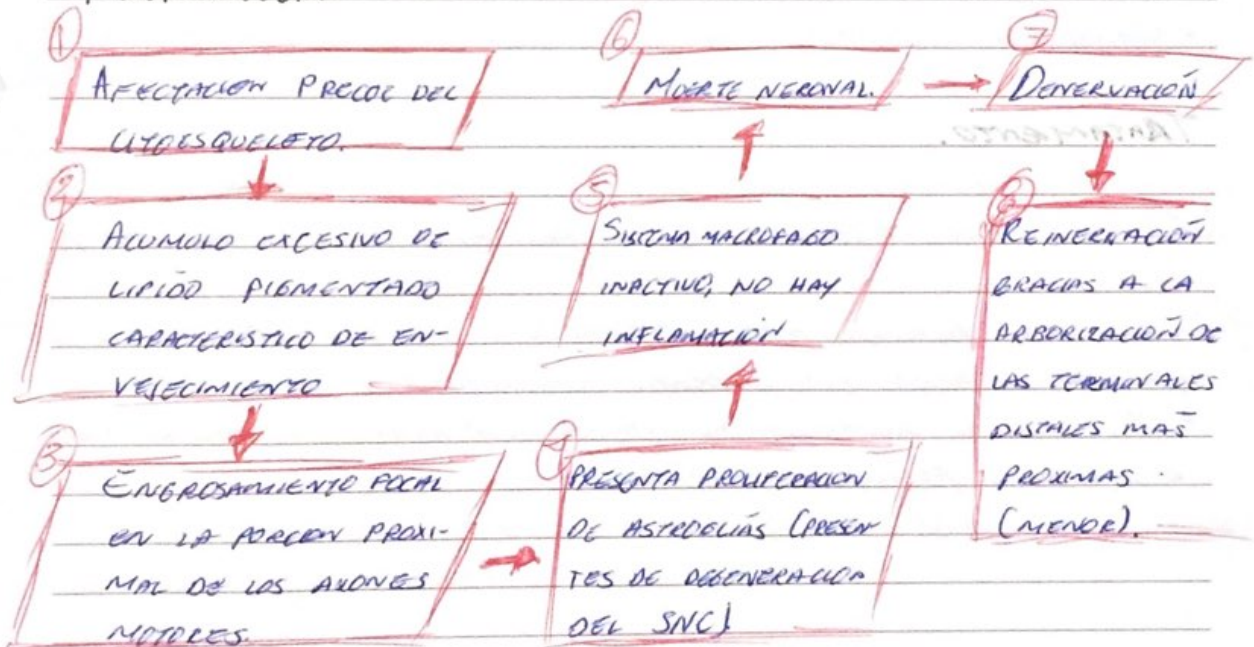 1
AFECTACION PRECOZ DEL
CITOESQUELETO.
2
ACUMULO EXCESIVO DE
LIPIDO PIGMENTADO
CARACTERISTICO DE EN-
VEJECIMIENTO
3
ENGROSAMIENTO FOCAL
EN LA PORCION PROXI-
MAL DE LOS AXONES
MOTORES.
4
PRESENTA PROLIFERACION
DE ASTROGLIAS (PRESEN
TES DE DEGENERACION
DEL SNC)
5
SISTEMA MACROFAGO
INACTIVO, NO HAY
INFLAMACIÓN
6
MUERTE NERONAL.
7
DENERVACIÓN
8
REINERVACIÓN
GRACIAS A LA
ARBORIZACIÓN DE
LAS TERMINALES
DISTALES MAS
PROXIMAS.
(MENOR).